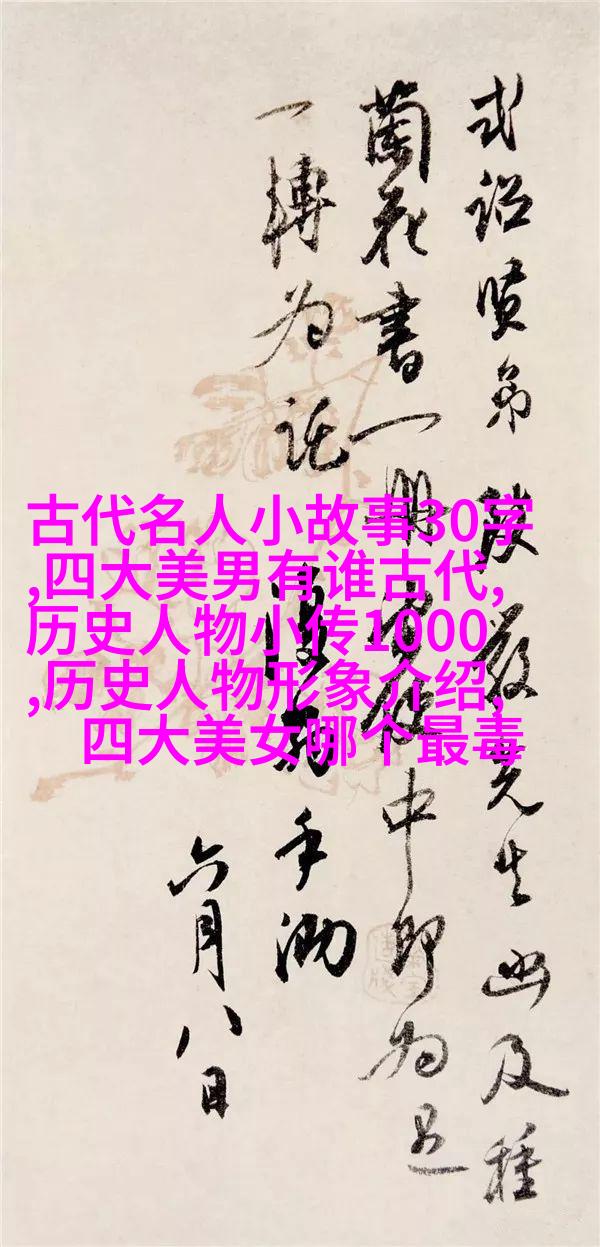 式詔賢弟 先生函及種
蘭花書一册 中即为足
一轉为託 手泐
六月八日
古代名人小故事30字
,四大美男有谁古代,
历史人物小传1000
,历史人物形象介绍,
四大美女哪个最毒